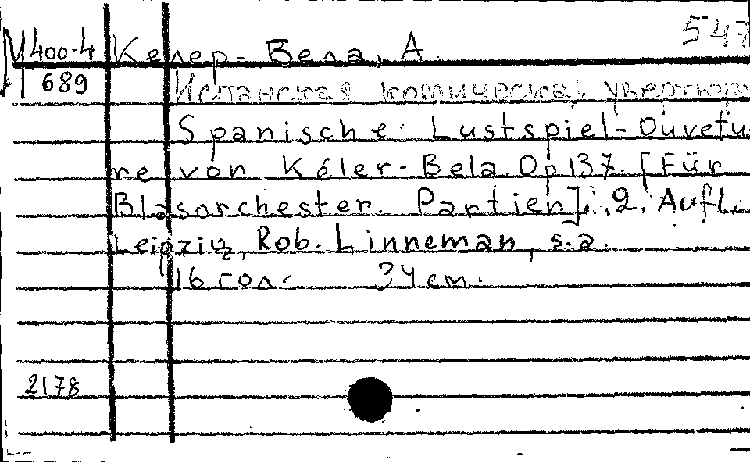 547
М400-4 Келер-Бела, А.
689 Испанская комическая увертюра
Spanische Lustspiel-Ouvetu
re von Kéler-Bela Op 137. [Für
Blasorchester. Partien]. 2. Aufl.
Leipzig, Rob. Linneman, s.a.
16 гол. 34 cm.
2178